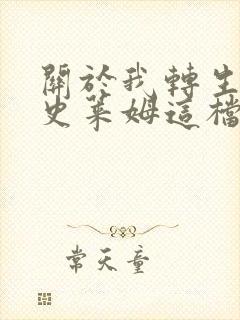 關於我轉生
史萊姆這檔
常天童